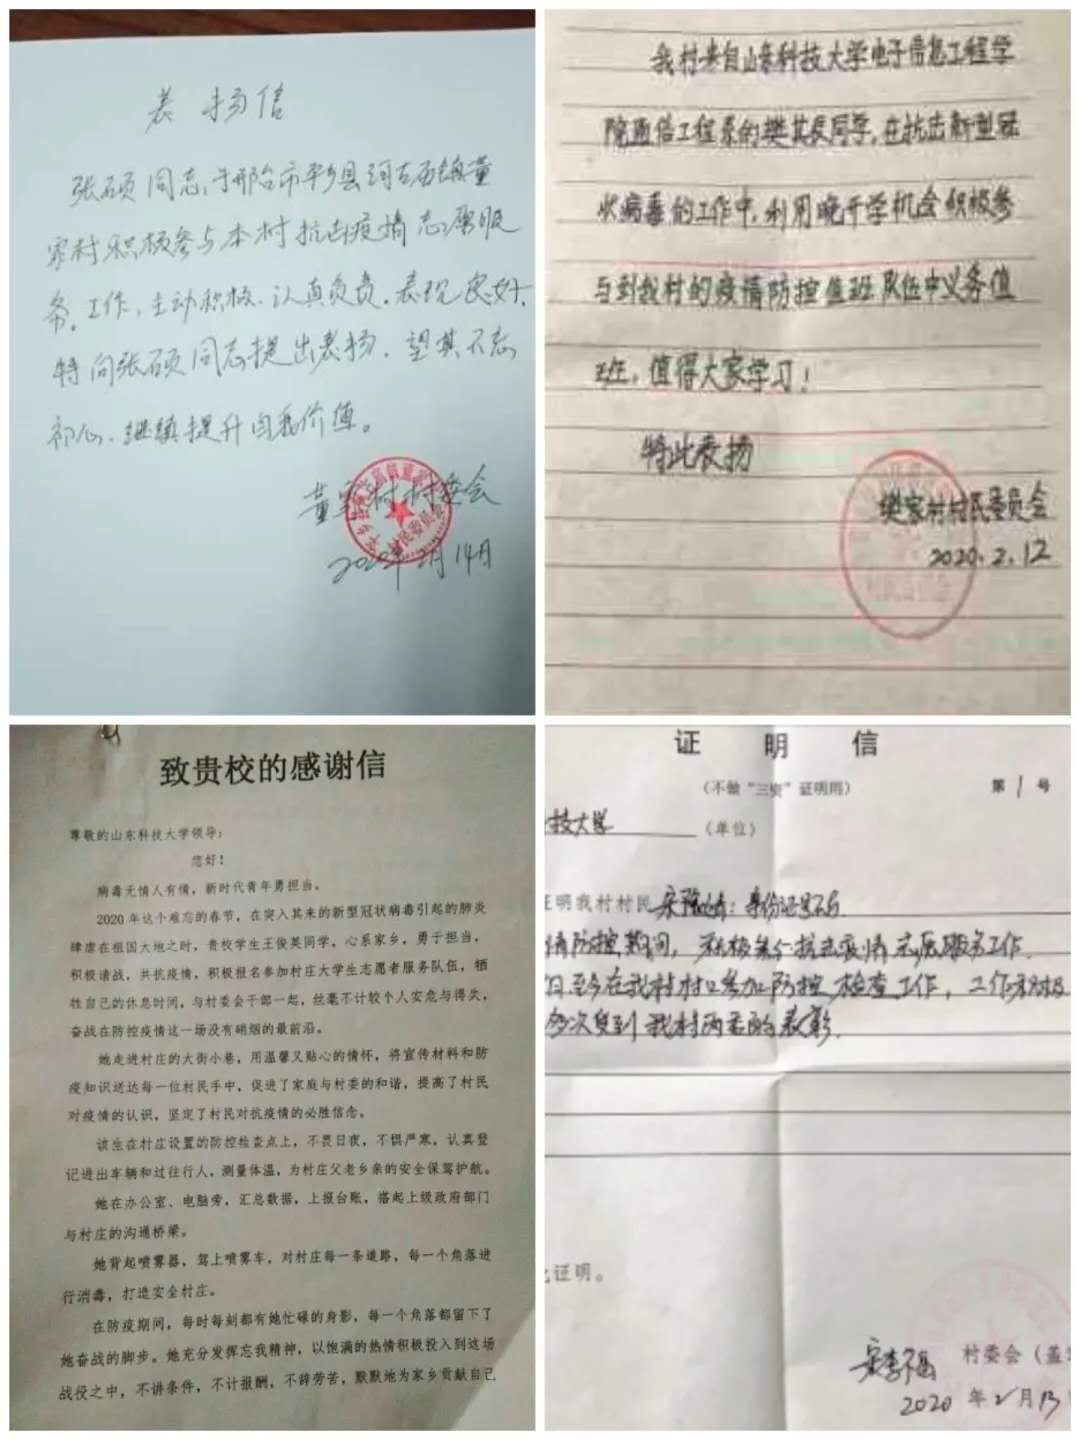 表扬信
张硕同志,于邢台市平乡县河古庙镇董
家村积极参与本村抗击疫情志愿服
务工作,主动积极、认真负责、表现良好,
特向张硕同志提出表扬,望其不忘
初心、继续提升自我价值。
董家村村委会
2020年2月14日
我村来自山东科技大学电子信息工程学
院通信工程系的樊其辰同学,在抗击新型冠
状病毒的工作中,利用晚开学机会积极参
与到我村的疫情防控值班队伍中义务值
班,值得大家学习!
特此表扬
樊家村村民委员会
2020.2.12
致贵校的感谢信
尊敬的山东科技大学领导:
您好!
病毒无情人有情,新时代青年勇担当。
2020年这个难忘的春节,在突入其来的新型冠状病毒引起的肺炎
肆虐在祖国大地之时,贵校学生王俊英同学,心系家乡,勇于担当,
积极请战,共抗疫情,积极报名参加村庄大学生志愿者服务队伍,牺
牲自己的休息时间,与村委会干部一起,丝毫不计较个人安危与得失,
奋战在防控疫情这一场没有硝烟的最前沿。
她走进村庄的大街小巷,用温馨又贴心的情怀,将宣传材料和防
疫知识送达每一位村民手中,促进了家庭与村委的和谐,提高了村民
对疫情的认识,坚定了村民对抗疫情的必胜信念。
该生在村庄设置的防控检查点上,不畏日夜,不惧严寒,认真登
记进出车辆和过往行人,测量体温,为村庄父老乡亲的安全保驾护航。
她在办公室、电脑旁,汇总数据,上报台账,搭起上级政府部门
与村庄的沟通桥梁。
她背起喷雾器,驾上喷雾车,对村庄每一条道路,每一个角落进
行消毒,打造安全村庄。
在防疫期间,每时每刻都有她忙碌的身影,每一个角落都留下了
她奋战的脚步。她充分发挥忘我精神,以饱满的热情积极投入到这场
战役之中,不讲条件,不计报酬,不辞劳苦,默默地为家乡贡献自己
证明信
(不做“三资”证明用) 第1号
技大学(单位)
证明我村村民宋
情防控期间,积极参个抗击疫情志愿服务工作.
日至今在我村村口参加防控检查工作,工作积极
多次受到我村两委的表彰.
此证明。
村委会(盖
2020年2月13